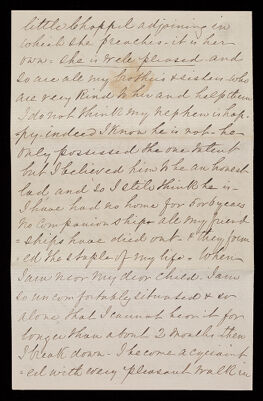 little Chappel adjoining in
which she preaches - it is her
own - she is well pleased and
so are all my brothers & sisters who
are very kind to her and help them
I do not think my nephew is hap-
-py - indeed I know he is not - he
only possessed the one talent
but I believed him to be an honest
lad, and so I still think he is -
I have had no home for 20 years
no companionship - all my friend
- ships have died out - & they form
- ed the staple of my life - When
I am near my dear child I am
so uncomfortably situated & so
alone that I cannot bear it for
longer than about 2 months then
I break down - I become acquaint
- ed with every pleasant walk in